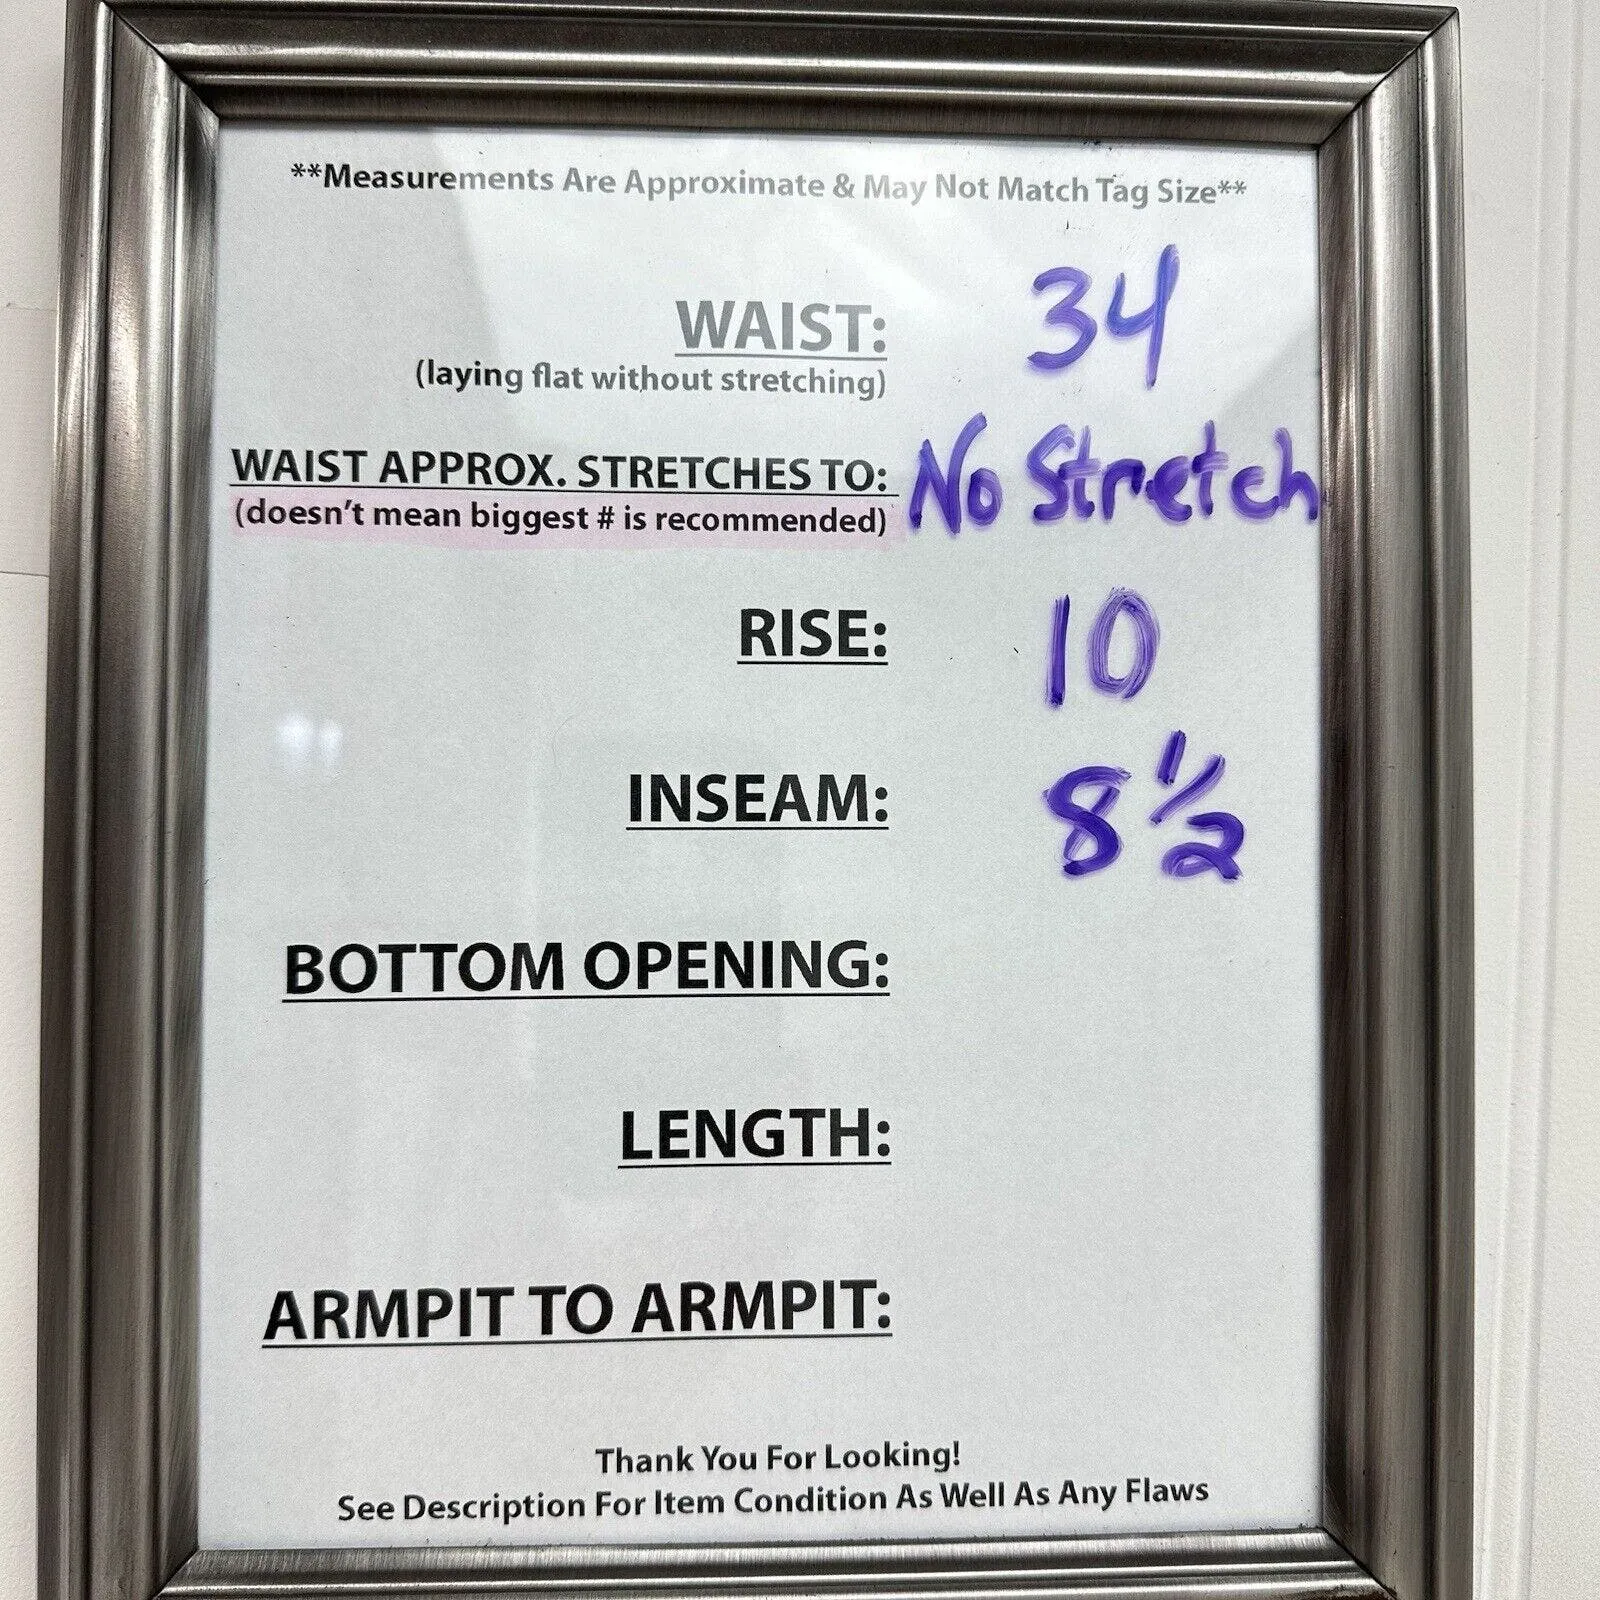 **Measurements Are Approximate & May Not Match Tag Size**
WAIST: 34
(laying flat without stretching)
WAIST APPROX. STRETCHES TO: No Stretch
(doesn't mean biggest # is recommended)
RISE: 10
INSEAM: 8 1/2
BOTTOM OPENING:
LENGTH:
ARMPIT TO ARMPIT:
Thank You For Looking!
See Description For Item Condition As Well As Any Flaws